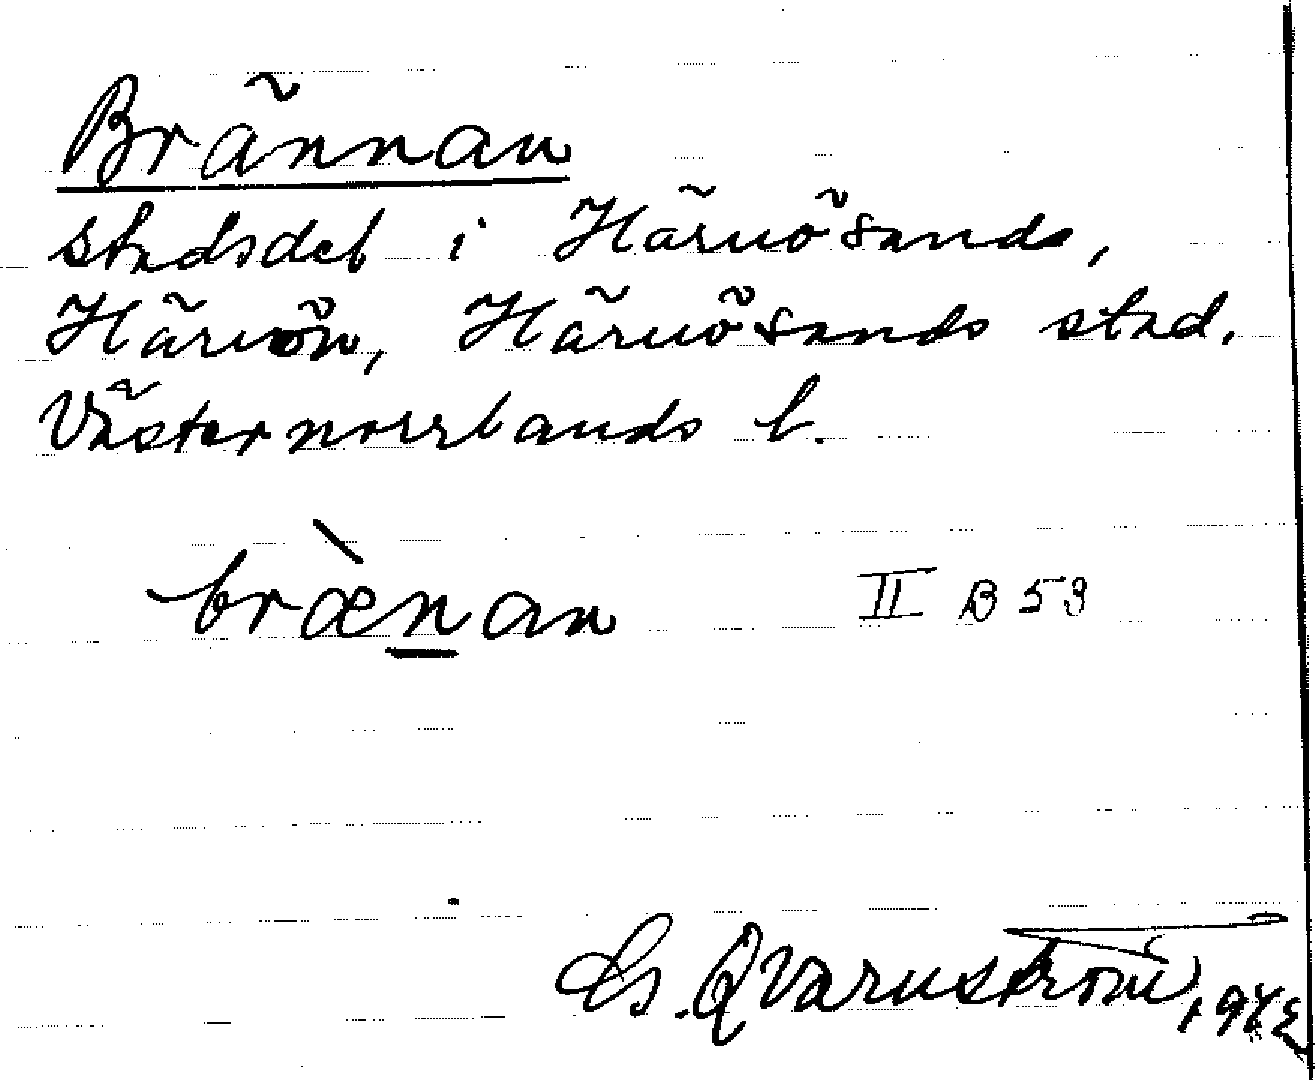 Brännan
stadsdel i Härnösands,
Härnön, Härnösands stad.
Västernorrlands l.
bræ̀nan II B 53
Qvarnström, 1942